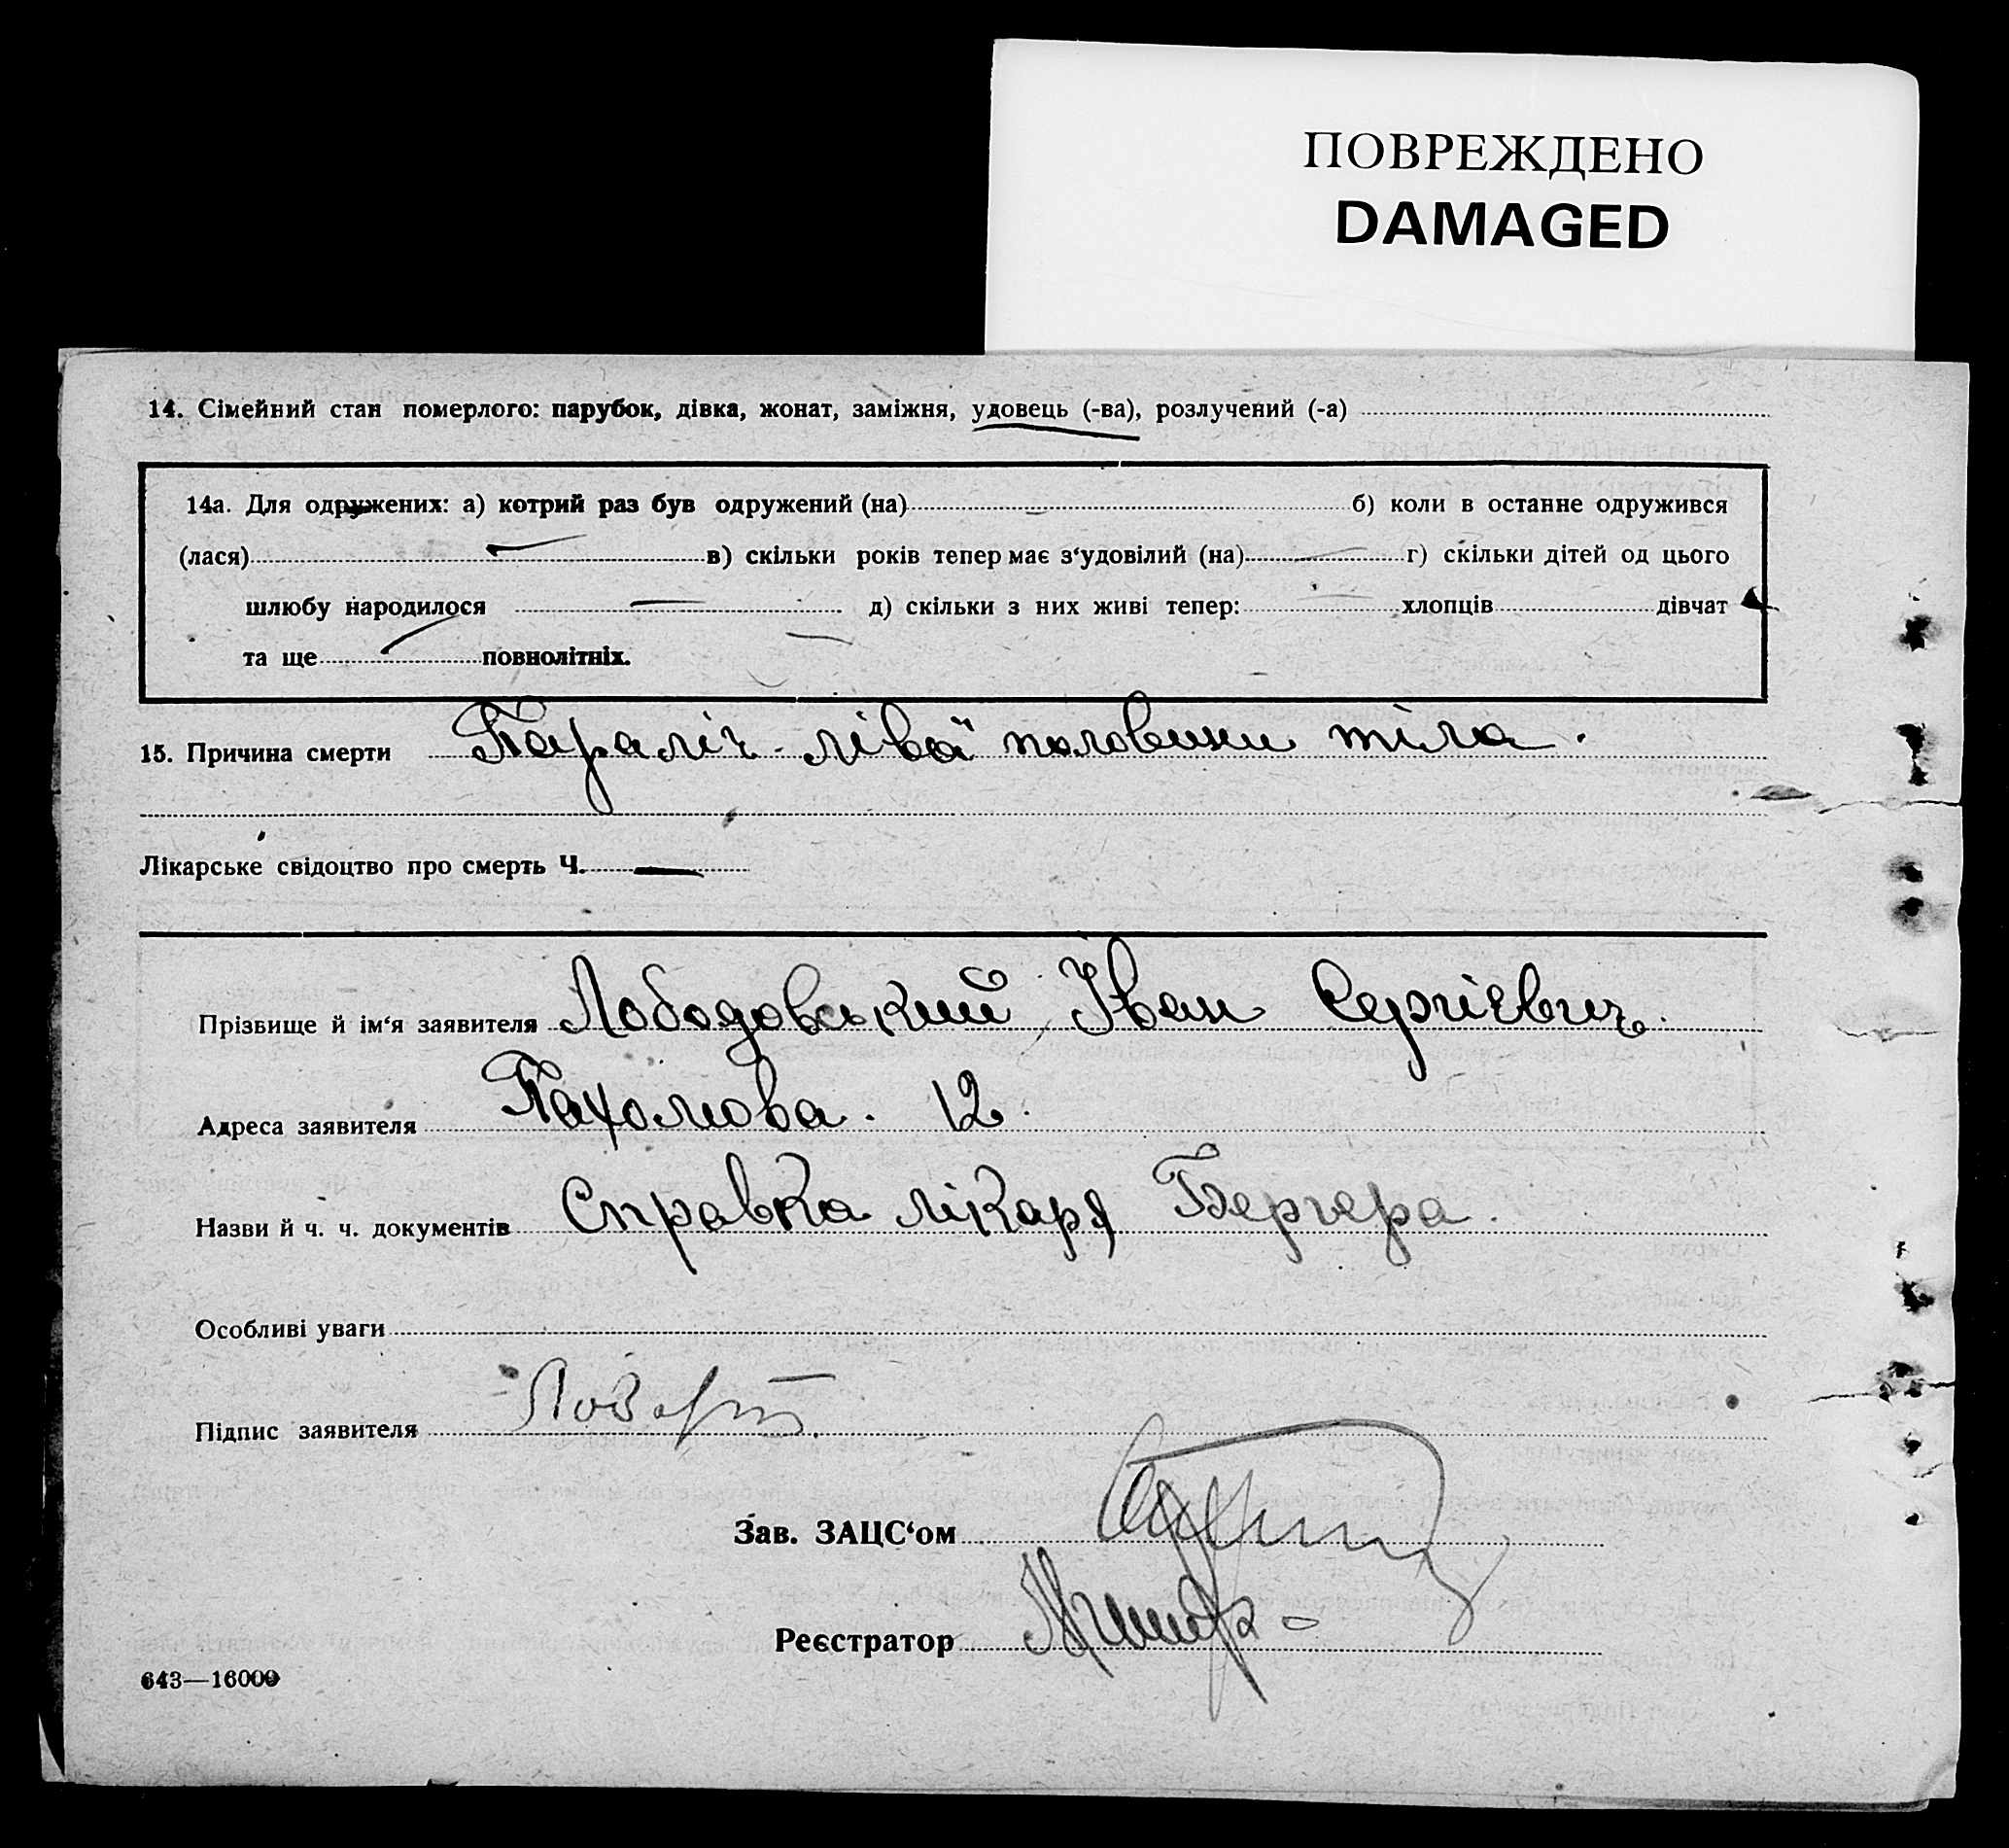 ПОВРЕЖДЕНО
DAMAGED
14. Сімейний стан померлого: парубок, дівка, жонат, заміжня, удовець (-ва), розлучений (-а)
14а. Для одружених: а) котрий раз був одружений (на) — б) коли в останне одружився
(лася) — в) скільки років тепер має з‘удовілий (на) — г) скільки дітей од цього
шлюбу народилося — д) скільки з них живі тепер: хлопців дівчат
та ще — повнолітніх.
15. Причина смерти Параліч лівої половини тіла.
Лікарське свідоцтво про смерть Ч. —
Прізвище й ім‘я заявителя Лободовський Іван Сергієвич.
Адреса заявителя Пахомова. 12.
Назви й ч. ч. документів Справка лікаря Бергера.
Особливі уваги
Підпис заявителя
Зав. ЗАЦС‘ом
Реєстратор
643—16000